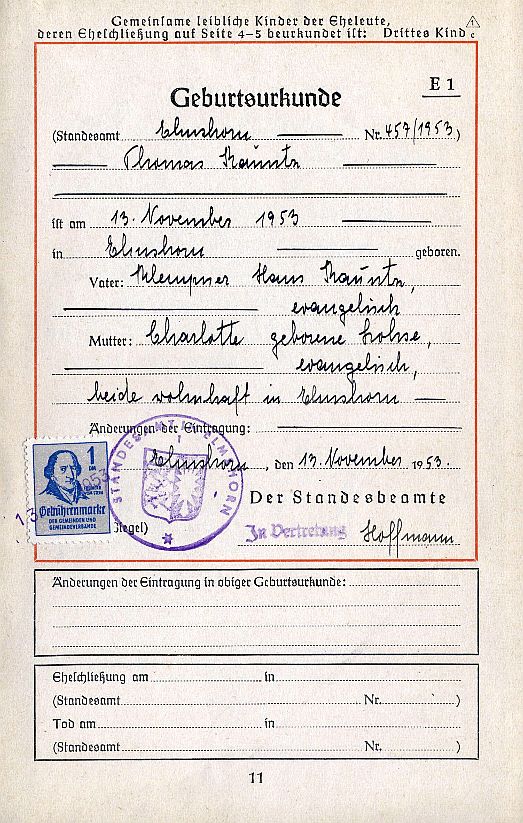 Gemeinsame leibliche Kinder der Eheleute,
deren Eheschließung auf Seite 4–5 beurkundet ist: Drittes Kind c
E 1
Geburtsurkunde
(Standesamt Elmshorn Nr. 457/1953)
Thomas Kauntz
ist am 13. November 1953
in Elmshorn geboren.
Vater: Klempner Hans Kauntz,
evangelisch
Mutter: Charlotte geborene Lohse,
evangelisch,
beide wohnhaft in Elmshorn
Änderungen der Eintragung:
Elmshorn, den 13. November 1953.
STANDESAMT ELMSHORN
1
1
DM
Gebührenmarke
DER GEMEINDEN UND
GEMEINDEVERBÄNDE
Der Standesbeamte
(Siegel)
In Vertretung Hoffmann
Änderungen der Eintragung in obiger Geburtsurkunde:
Eheschließung am in
(Standesamt Nr. )
Tod am in
(Standesamt Nr. )
11